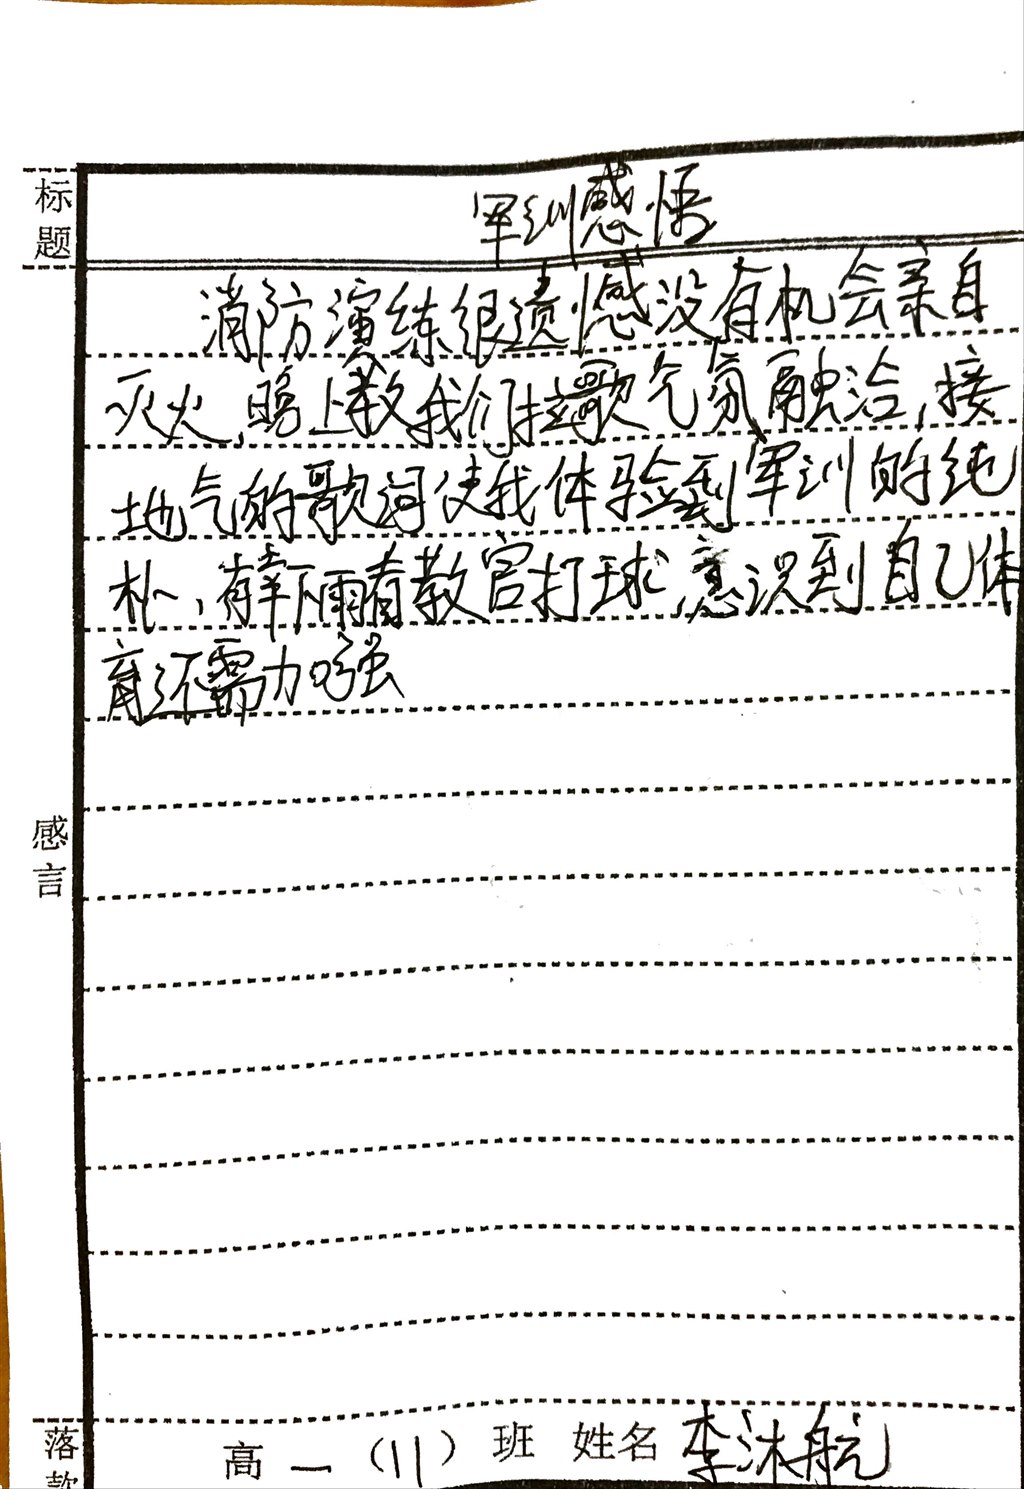 标题
军训感悟
消防演练很遗憾没有机会亲自
灭火,晚上教我们拉歌气氛融洽,接
地气的歌词使我体验到军训的纯
朴,有幸下雨看教官打球,意识到自己体
育还需加强
感言
落款
高一(11)班 姓名 李沐航